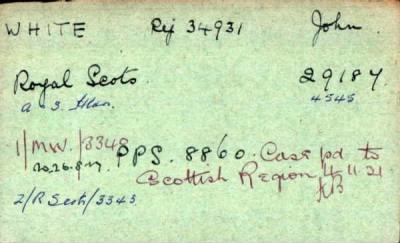 WHITE Rej 34931 John
Royal Scots. 29187
4545
1/MW./3348 PPS. 8860. Case pd to
Scottish Region 4.11.21
2/R Scots/3343